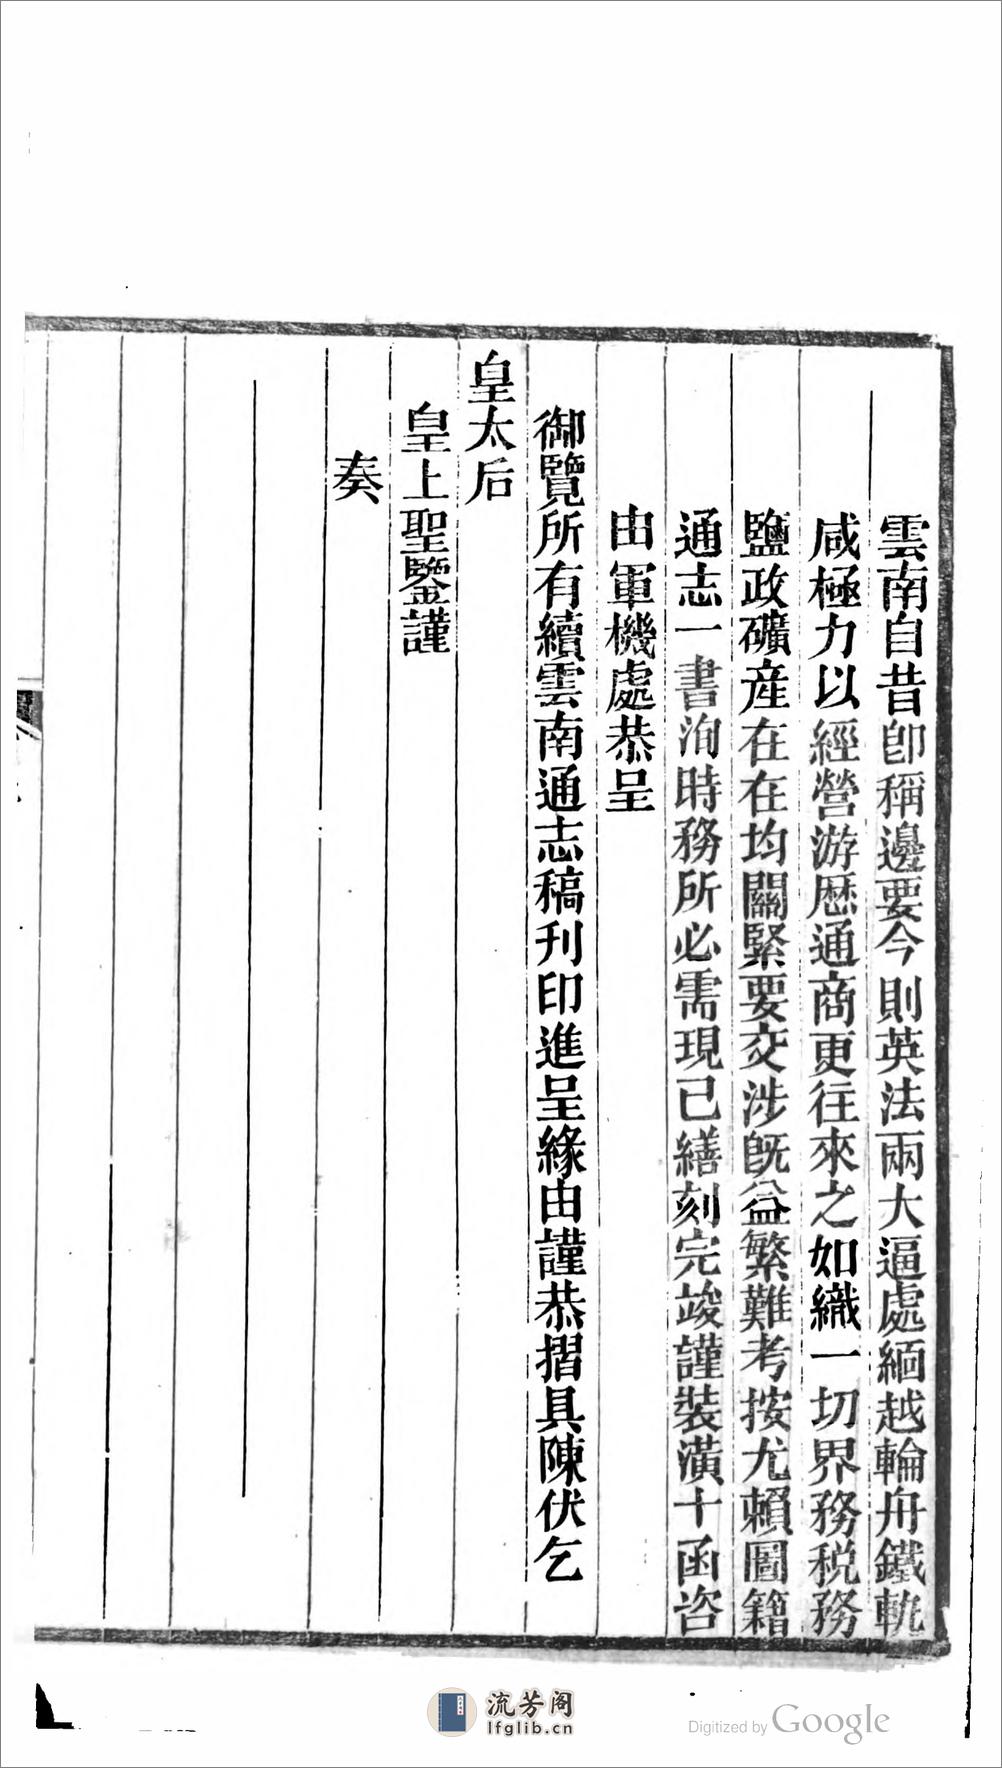 雲南自昔卽稱邊要今則英法兩大逼處緬越輪舟鐵軌
咸極力以經營游厯通商更往來之如織一切界務稅務
鹽政礦産在在均關緊要交涉旣益繁難考按尤賴圖籍
通志一書洵時務所必需現已繕刻完竣謹裝潢十函咨
由軍機處恭呈
御覽所有續雲南通志稿刊印進呈緣由謹恭摺具陳伏乞
皇太后
皇上聖鑒謹
奏
流芳阁
lfglib.cn
Digitized by Google